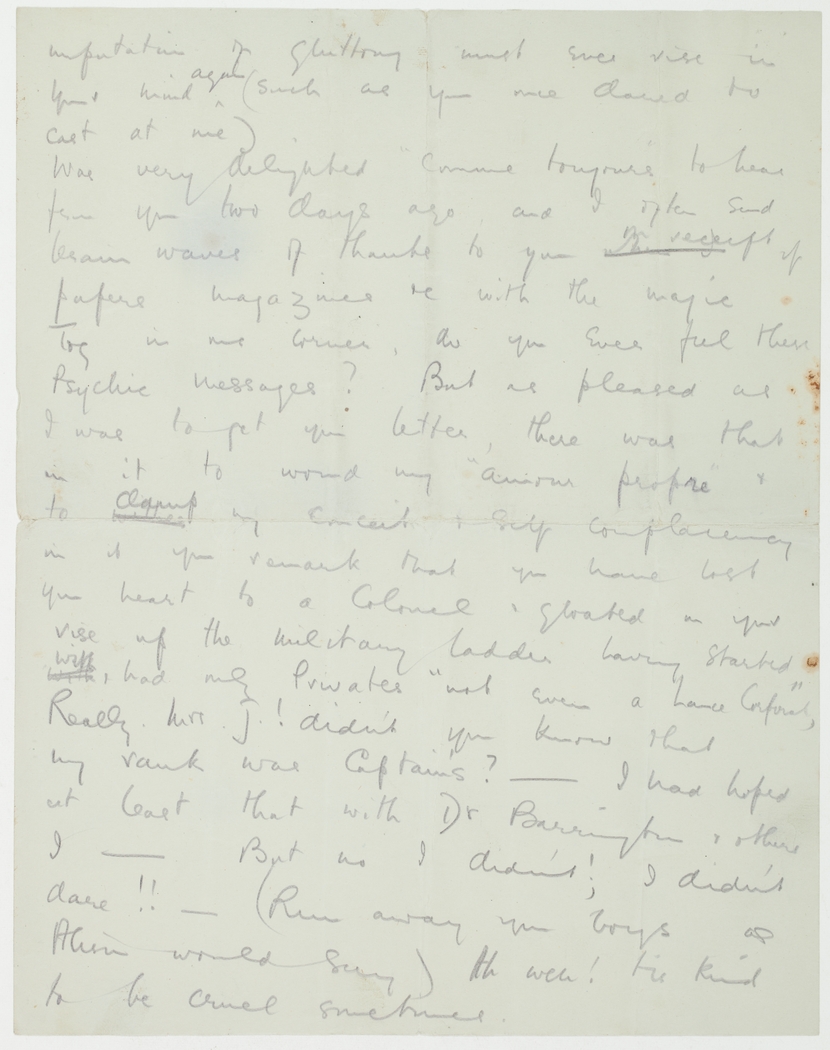 imputation of gluttony must ever rise in
your mind again (such as you once dared to
cast at me)
Was very delighted "comme toujours to hear
from you two days ago, and I often send
brain waves of thanks to you receipt of
papers magazines &c with the magic
Tog in one corner, do you ever feel these
Psychic messages? But as pleased as
I was to get your letter, there was that
in it to wound my "amour propre" &
to damp my conceit & self complacency
in it you remark that you have lost
your heart to a Colonel & gloated on your
rise up the military ladder having started
with, had only Privates "not even a Lance Corporal",
Really Mrs J.! didn't you know that
my rank was Captain's? — I had hoped
at least that with Dr Barrington & others
I — But no I didn't!; I didn't
dare!! — (Run away you boys as
would say) Ah well! tis kind
to be cruel sometimes.